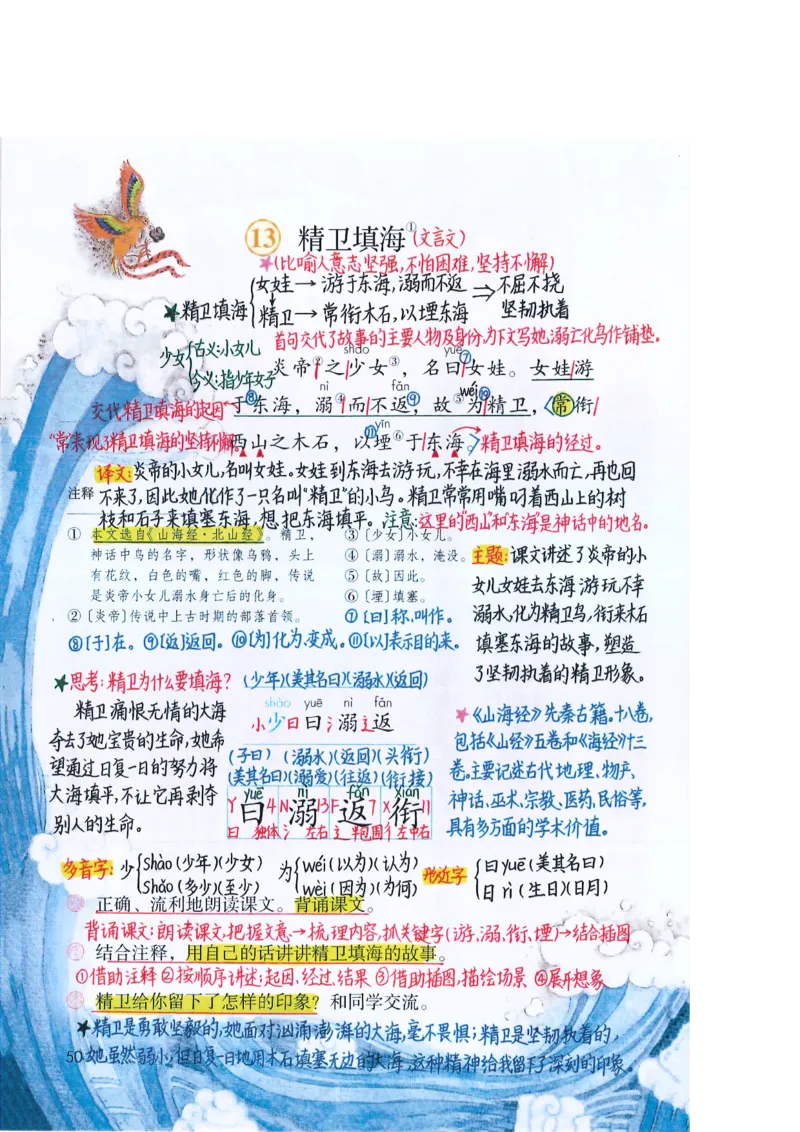 13 精卫填海①(文言文)
★(比喻人意志坚强,不怕困难,坚持不懈)
★精卫填海{女娃→游于东海,溺而不返⇒不屈不挠
精卫→常衔木石,以堙东海 坚韧执着
首句交代了故事的主要人物及身份,为下文写她溺亡化鸟作铺垫。
少女{古义:小女儿
今义:指少年女子
shào yuē
炎帝②/之/少女③,名曰⑦/女娃。女娃/游
nì fǎn wéi
交代精卫填海的起因 于⑧/东海,溺④/而/不返⑨,故⑤为⑩/精卫,〈常/衔/
yīn
“常”表现了精卫填海的坚持不懈。西山之木石,以⑪/堙⑥/于/东海。〉精卫填海的经过。
译文:炎帝的小女儿,名叫女娃。女娃到东海去游玩,不幸在海里溺水而亡,再也回
注释 不来了,因此她化作了一只名叫“精卫”的小鸟。精卫常常用嘴叼着西山上的树
枝和石子来填塞东海,想把东海填平。注意:这里的“西山”和“东海”是神话中的地名。
① 本文选自《山海经·北山经》。精卫,
神话中鸟的名字,形状像乌鸦,头上
有花纹,白色的嘴,红色的脚,传说
是炎帝小女儿溺水身亡后的化身。
②〔炎帝〕传说中上古时期的部落首领。
③〔少女〕小女儿。
④〔溺〕溺水,淹没。
⑤〔故〕因此。
⑥〔堙〕填塞。
⑦〔曰〕称,叫作。
⑧[于]在。⑨[返]返回。⑩[为]化为、变成。⑪[以]表示目的来。
主题:课文讲述了炎帝的小
女儿女娃去东海游玩不幸
溺水,化为精卫鸟,衔来木石
填塞东海的故事,塑造
了坚韧执着的精卫形象。
★思考:精卫为什么要填海?
精卫痛恨无情的大海
夺去了她宝贵的生命,她希
望通过日复一日的努力将
大海填平,不让它再剥夺
别人的生命。
(少年)(美其名曰)(溺水)(返回)
shào yuē nì fǎn
小少日曰氵溺辶返
(子曰)(溺水)(返回)(头衔)
(美其名曰)(溺爱)(往返)(衔接)
yuē nì fǎn xián
Y曰4 N溺13 F返7 X衔11
曰 独体 氵 左右 辶 半包围 彳 左中右
★《山海经》先秦古籍。十八卷,
包括《山经》五卷和《海经》十三
卷。主要记述古代地理、物产、
神话、巫术、宗教、医药、民俗等,
具有多方面的学术价值。
多音字:少{shào(少年)(少女)
shǎo(多少)(至少)
为{wéi(以为)(认为)
wèi(因为)(为何)
形近字{曰yuē(美其名曰)
日rì(生日)(日月)
正确、流利地朗读课文。背诵课文。
背诵课文:朗读课文,把握文意→梳理内容,抓关键字(游、溺、衔、堙)→结合插图
结合注释,用自己的话讲讲精卫填海的故事。
①借助注释②按顺序讲述:起因、经过、结果③借助插图,描绘场景④展开想象
精卫给你留下了怎样的印象?和同学交流。
★精卫是勇敢坚毅的,她面对汹涌澎湃的大海,毫不畏惧;精卫是坚韧执着的,
50 她虽然弱小,但日复一日地用木石填塞无边的大海,这种精神给我留下了深刻的印象。